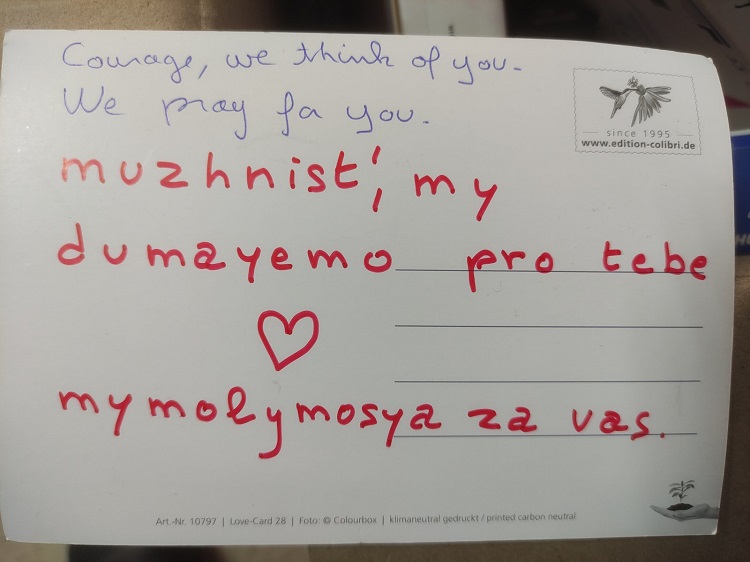 Courage, we think of you.
We pray for you.
since 1995
www.edition-colibri.de
muzhnist', my
dumayemo pro tebe
my molymosya za vas.
Art.-Nr. 10797 | Love-Card 28 | Foto: © Colourbox | klimaneutral gedruckt / printed carbon neutral